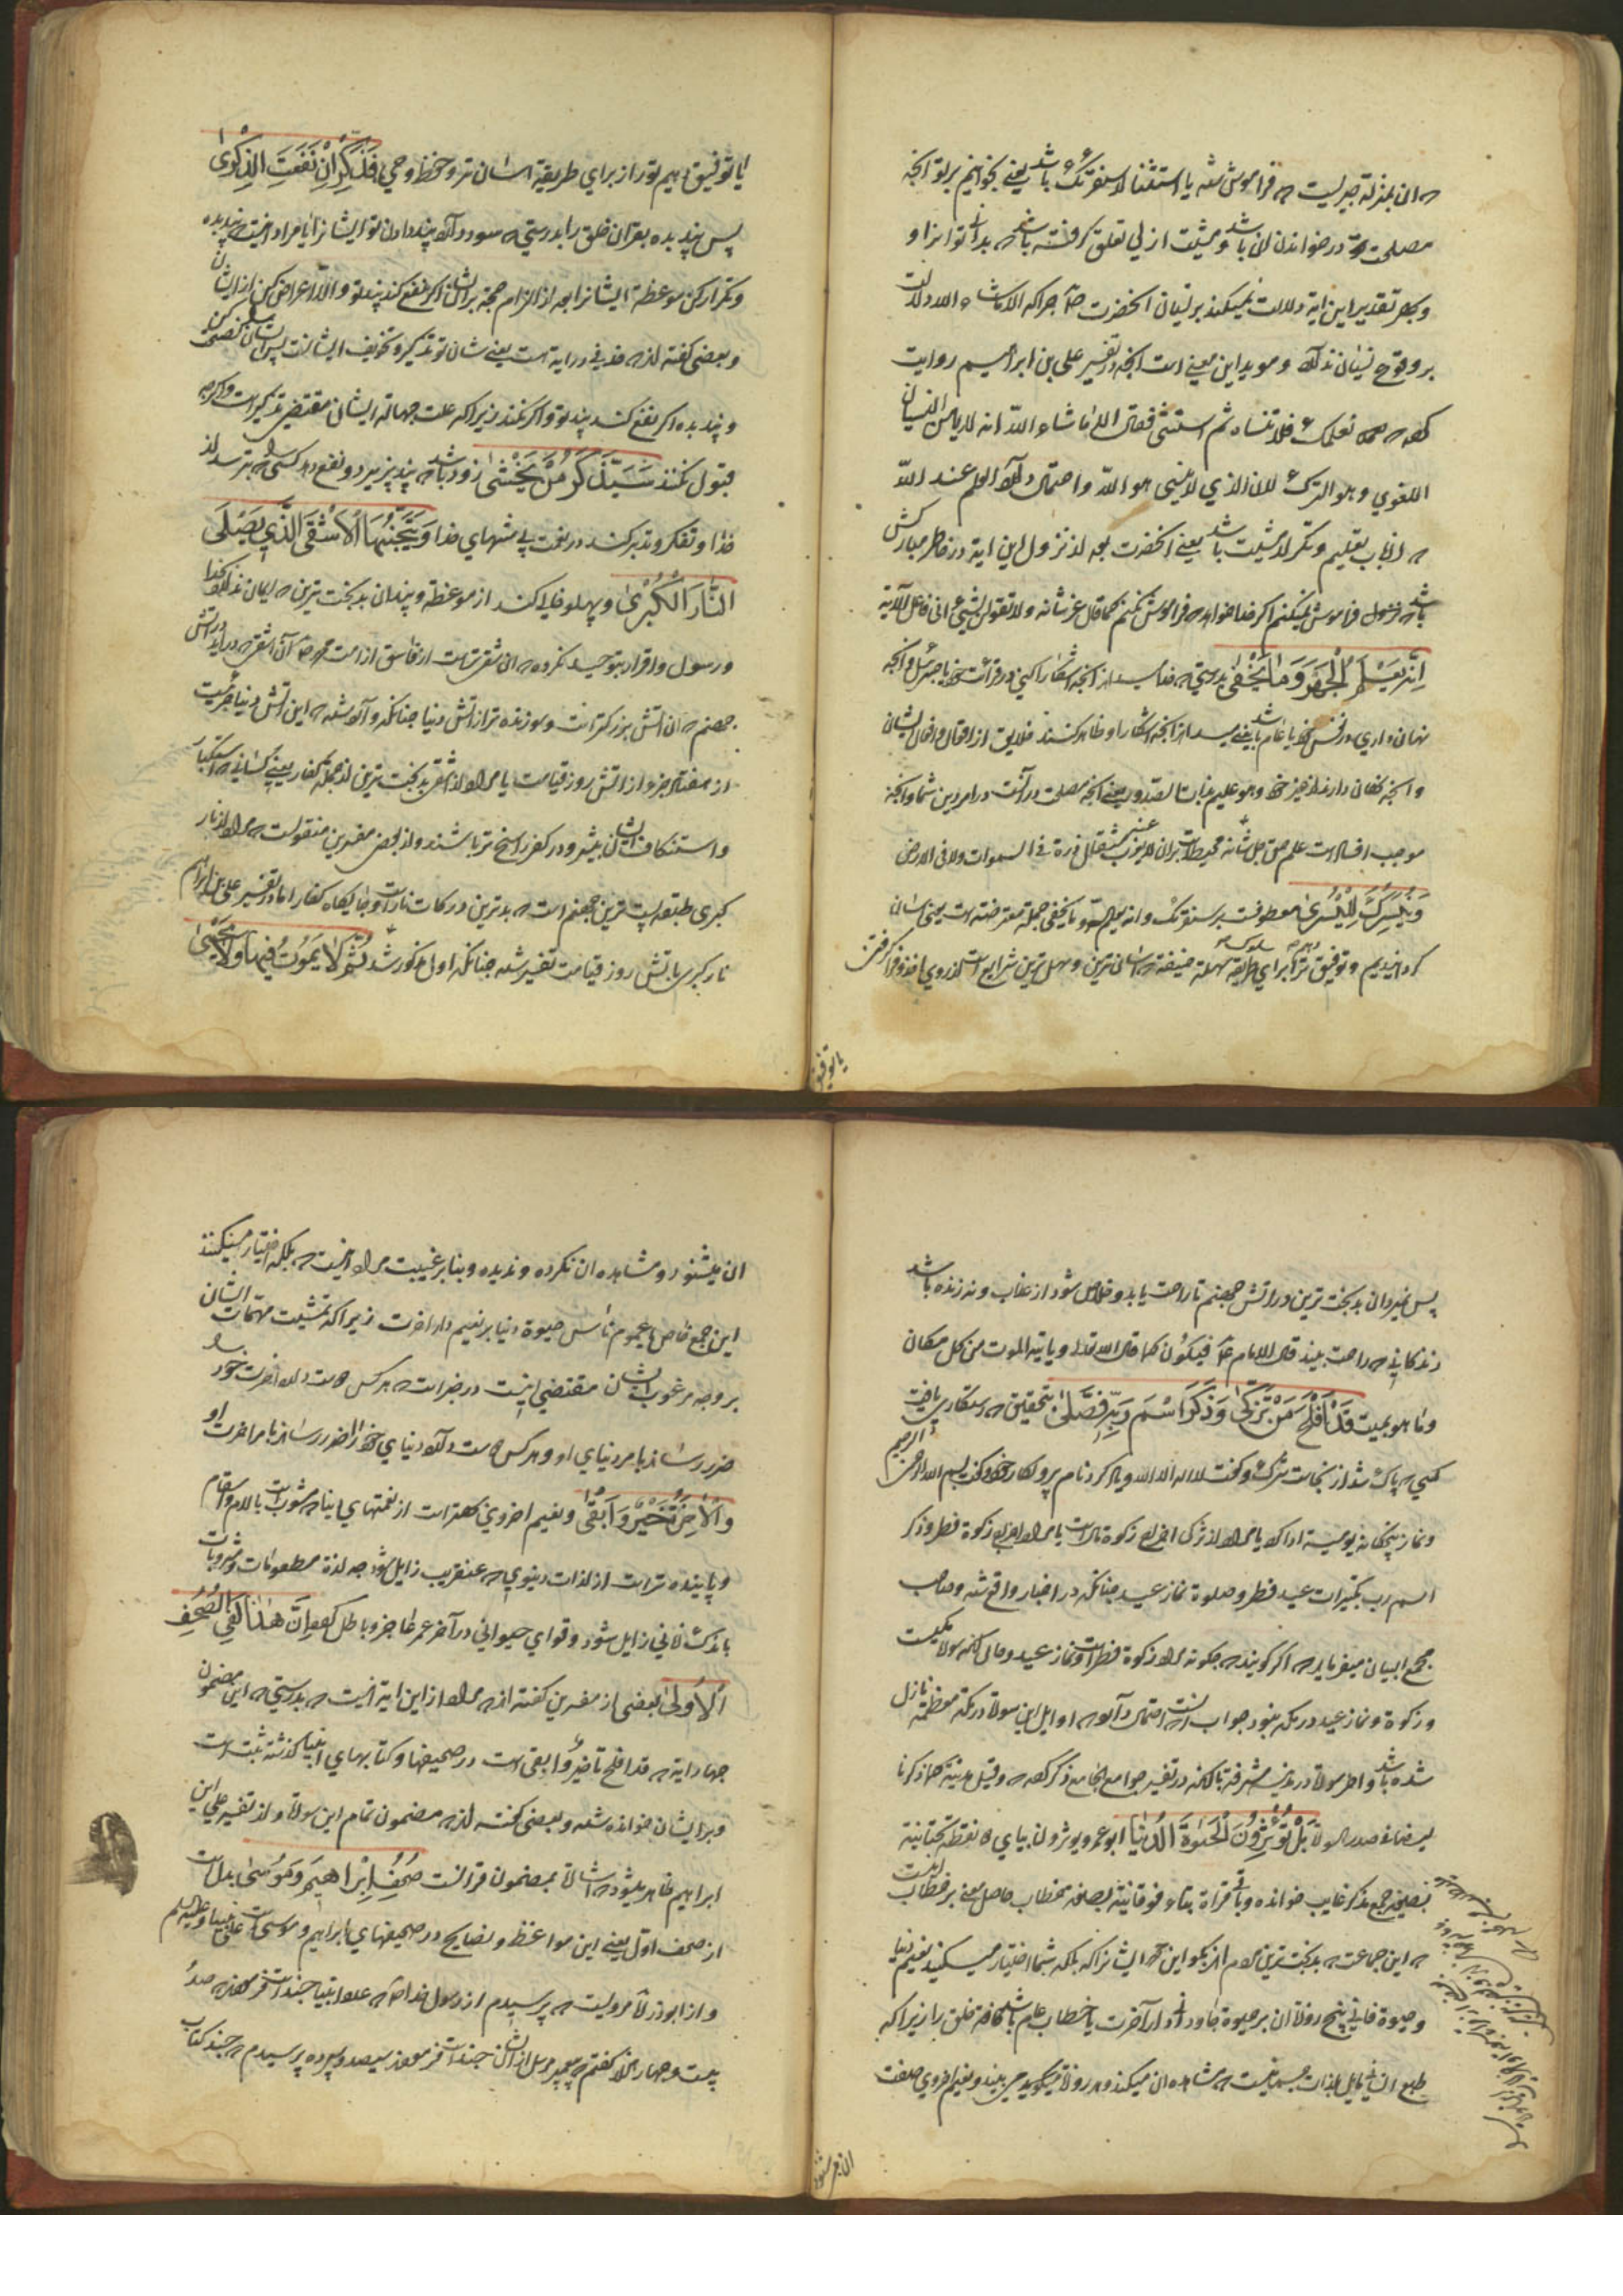 که ان بمنزله چیزیست که فراموش شده یا استثنا از سنقرئک باشد یعنی بخوانیم بر تو انچه
مصلحت تو در خواندن ان باشد و مشیت ازلی تعلق گرفته باشد که بدانی تو انرا و
و بهر تقدیر این ایه دلالت نمیکند بر نسیان انحضرت چرا که الا ماشاء الله دلالت
بر وقوع نسیان ندارد و موید این معنی است انچه در تفسیر علی بن ابراهیم روایت
نعلمک فلا تنساه ثم استثنی فقال الا ماشاء الله انه لا یامن النسیان
اللغوی و هو الترک لان الذی لا ینسی هو الله و احتمال دارد و العلم عند الله
که از باب تعلیم و تبرک از مشیت باشد یعنی انحضرت بعد از نزول این ایه در خاطر مبارکش
باشد که فراموش نمیکنم اگر خدا خواهد که فراموش نکنم کما قال عز شانه ولا تقولن لشیء انی فاعل الآیة
اِنَّهُ یَعْلَمُ الْجَهْرَ وَمَا یَخْفیٰ بدرستی که خدا میداند انچه اشکارا کنی در قرائت خود با جبرئیل و انچه
نهان داری در نفس خود یا عام باشد یعنی میداند انچه اشکارا و ظاهر کنند خلایق از اقوال و افعال ایشان
و انچه نهان دارند از خیر و شر و هو علیم بذات الصدور یعنی انچه مصلحت در آنست در امر دین شما و انچه
موجب افساد است علم حق جل شانه محیط است بران لا یعزب عنه مثقال ذرة فی السموات ولا فی الارض
وَنُیَسِّرُکَ لِلْیُسْریٰ معطوفست بر سنقرئک و انه یعلم الجهر و ما یخفی جمله معترضه است یعنی اسان
گردانیدیم و توفیق ترا برای طریقه سهله حنیفه که اسان ترین و سهل ترین شرایع است از روی اخذ و فرا گرفتن
یا توفیق
یا توفیق دهیم تورا از برای طریقه اسان تر و حفظ وحی فَذَکِّرْ اِنْ نَفَعَتِ الذِّکْریٰ
پس پند بده بقران خلق را بدرستی که سود دارد پند دادن تو ایشانرا یا مراد انیست که پند بده
و تکرار کن موعظه ایشانرا بعد از الزام حجه بر ایشان اگر نفع کند پند تو و الا اعراض کن از ایشان
و بعضی گفته اند که حذفی در ایه است یعنی شان تو تذکیر و تخویف ایشانست
و پند بده اگر نفع کند پند تو و اگر نکند زیرا که علت جهاله ایشان مقتضی تذکیر است و اگر چه
قبول نکنند سَیَذَّکَّرُ مَنْ یَخْشیٰ زود باشد که پند پذیرد و نفع دهد کسی را که بترسد از
خدا و تفکر و تدبر کند در نعمت بی منتهای خدا وَیَتَجَنَّبُهَا الْاَشْقَی الَّذی یَصْلَی
النَّارَ الْکُبْریٰ و پهلو خالی کند از موعظه و پندان بدبخت ترین که ایمان ندارد بخدا
و رسول و اقرار بتوحید نکرده که ان شقی تر است از فاسق از امت محمد ص آن اشقی که دراید در اتش
جهنم که ان اتش بزرگتر است و سوزنده تر از اتش دنیا چنانکه وارد شده که این اتش دنیا جزئیست
از هفتاد جزو از اتش روز قیامت یا مراد از اشقی بدبخت ترین از جمله کفار یعنی کسانی که استکبار
و استنکاف ایشان بیشتر و در کفر راسخ تر باشند و از بعض مفسرین منقولست که مراد از نار
کبری طبقه پست ترین جهنم است که بدترین درکات نار است و جایگاه کفار اما در تفسیر علی بن ابراهیم
نار کبری باتش روز قیامت تفسیر شده چنانکه اول مذکور شد ثُمَّ لَا یَمُوتُ فیهَا وَلَا یَحْییٰ
پس نمیرد ان بدبخت ترین در اتش جهنم تا راحت یابد و خلاص شود از عذاب و نه زنده باشد
زندگانی که راحت بیند قال الامام ع فیکون کما قال الله تعالی و یاتیه الموت من کل مکان
و ما هو بمیت قَدْ اَفْلَحَ مَنْ تَزَکّیٰ وَذَکَرَ اسْمَ رَبِّهِ فَصَلّیٰ بتحقیق که رستکاری یافت
کسی که پاک شد از نجاست شرک و گفت لا اله الا الله و یاد کرد نام پروردگار خود و گفت بسم الله الرحمن الرحیم
و نماز پنجگانه یومیه ادا کرد یا مراد از تزکی اخراج زکوة مال است یا مراد اخراج زکوة فطر و ذکر
اسم رب تکبیرات عید فطر و صلوة نماز عید چنانکه در اخبار واقع شده و صاحب
مجمع البیان میفرماید که اگر گویند که چگونه مراد زکوة فطر است و نماز عید و حال انکه سوره مکیست
و زکوة و نماز عید در مکه نبود جواب انست که احتمال دارد که اوایل این سوره در مکه معظمه نازل
شده باشد و اخر سوره در مدینه مشرفه بلکه در تفسیر جوامع الجامع ذکر کرده که و قیل مدنیة کما ذکرنا
فی صدر السورة بَلْ تُؤْثِرُونَ الْحَیٰوةَ الدُّنْیَا ابو عمرو یوثرون بیای دو نقطه تحتانیة
بصیغه جمع مذکر غایب خوانده و باقی قراء بتاء فوقانیة بصیغه مخطاب حاصل معنی بر خطاب انست
که این جماعت که بدبخت ترین مردم اند بگو این ایشانرا که بلکه شما اختیار میکنید نعیم دنیا
و حیوة فانی پنج روزه ان بر حیوة جاودانی دار آخرت یا خطاب عام باشد کافه خلق را زیرا که
طبع انسانی مایل بلذات جسمانیست که مشاهده ان میکند و هر روزه میگوید می بیند و نعیم اخروی صفت
ان میشنود
ان میشنود و مشاهده ان نکرده و ندیده و بنابر غیبت مراد انیست که بلکه اختیار میکنند
این جمع خاص یا عموم ناس حیوة دنیا بر نعیم دار اخرت زیرا که تمشیت مهمات ایشان
بر وجه مرغوب ایشان مقتضی اینست در خبر است که هر کس دوست دارد اخرت خود را
ضرر رساند بامر دنیای او و هر کس دوست دارد دنیای خود را ضرر رساند بامر اخرت او
وَالْاٰخِرَةُ خَیْرٌ وَاَبْقیٰ و نعیم اخروی بهتر است از نعمتهای دنیا که مشوب است بالام و اسقام
و پاینده تر است از لذات دنیوی که عنقریب زایل شود چه لذة مطعومات و مشروبات
باندک زمانی زایل شود و قوای حیوانی در آخر عمر عاجز و باطل گردد اِنَّ هٰذَا لَفِی الصُّحُفِ
الْاُولیٰ بعضی از مفسرین گفته اند که مراد از این ایه انیست که بدرستی که این مضمون
چهار ایه که قد افلح تا خیر و ابقی است در صحیفها و کتابهای انبیاء گذشته ثبت است
و بر ایشان خوانده شده و بعضی گفته اند که مضمون تمام این سوره و از تفسیر علی بن
ابراهیم ظاهر میشود که اشاره بمضمون قرانست صُحُفِ اِبْرَاهیمَ وَمُوسیٰ بدل است
از صحف اول یعنی این مواعظ و نصایح در صحیفهای ابراهیم و موسی است علی نبینا و علیهم
و از ابوذر ره مرویست که پرسیدم از رسول خدا ص که عدد انبیا چند است فرمودند که صد
بیست و چهار هزار گفتم که پیغمبر مرسل از ایشان چند است فرمودند سیصد و سیزده پرسیدم که چند کتاب